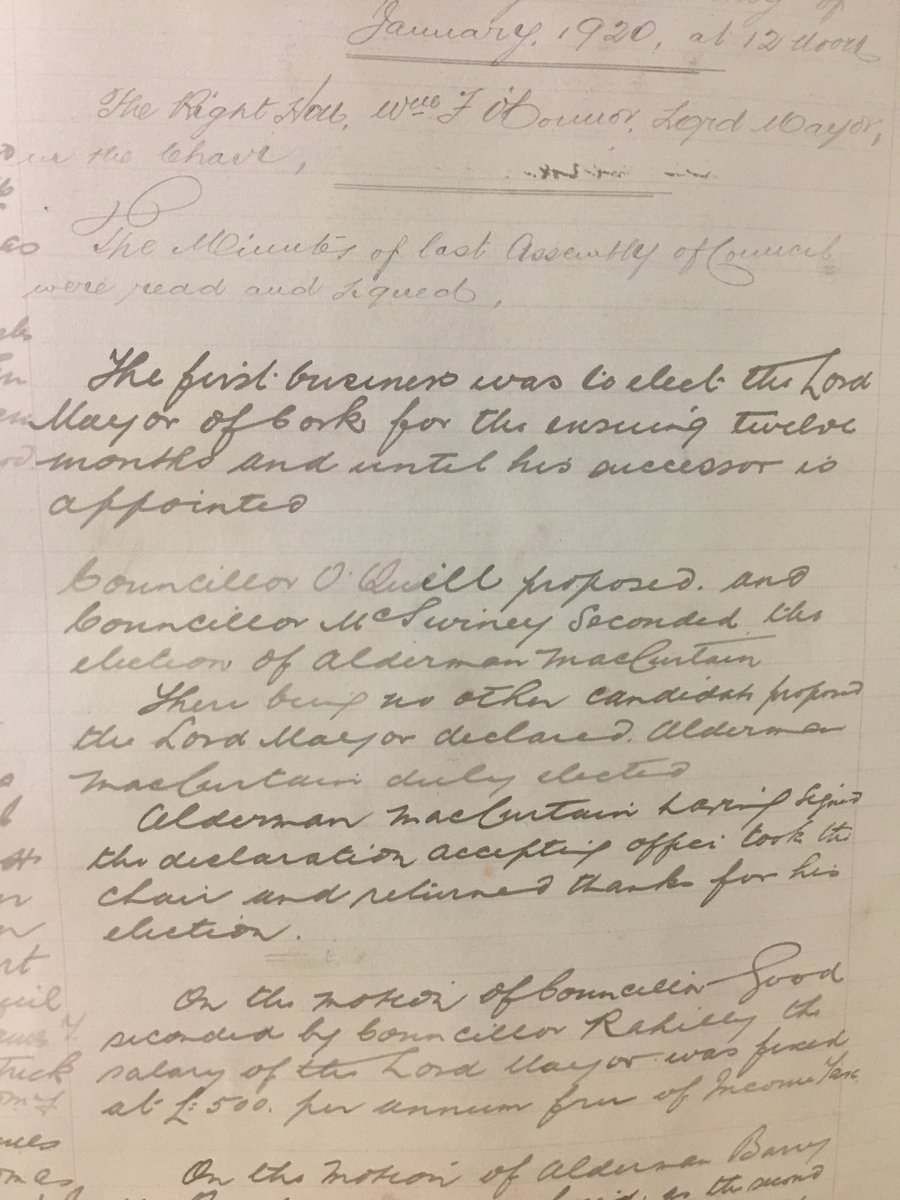 January, 1920, at 12 Noon
The Right Hon. Wm F O'Connor, Lord Mayor,
in the Chair,
The Minutes of last Assembly of Council
were read and signed,
The first business was to elect the Lord
Mayor of Cork for the ensuing twelve
months and until his successor is
appointed
Councillor O'Quill proposed. and
Councillor McSwiney Seconded the
election of Alderman MacCurtain
There being no other candidate proposed
the Lord Mayor declared. Alderman
MacCurtain duly elected
Alderman MacCurtain having signed
the declaration accepting office took the
chair and returned thanks for his
election.
On the motion of Councillor Good
seconded by Councillor Rahilly the
salary of the Lord Mayor was fixed
at £500. per annum free of Income Tax
On the motion of Alderman Barry
as the second